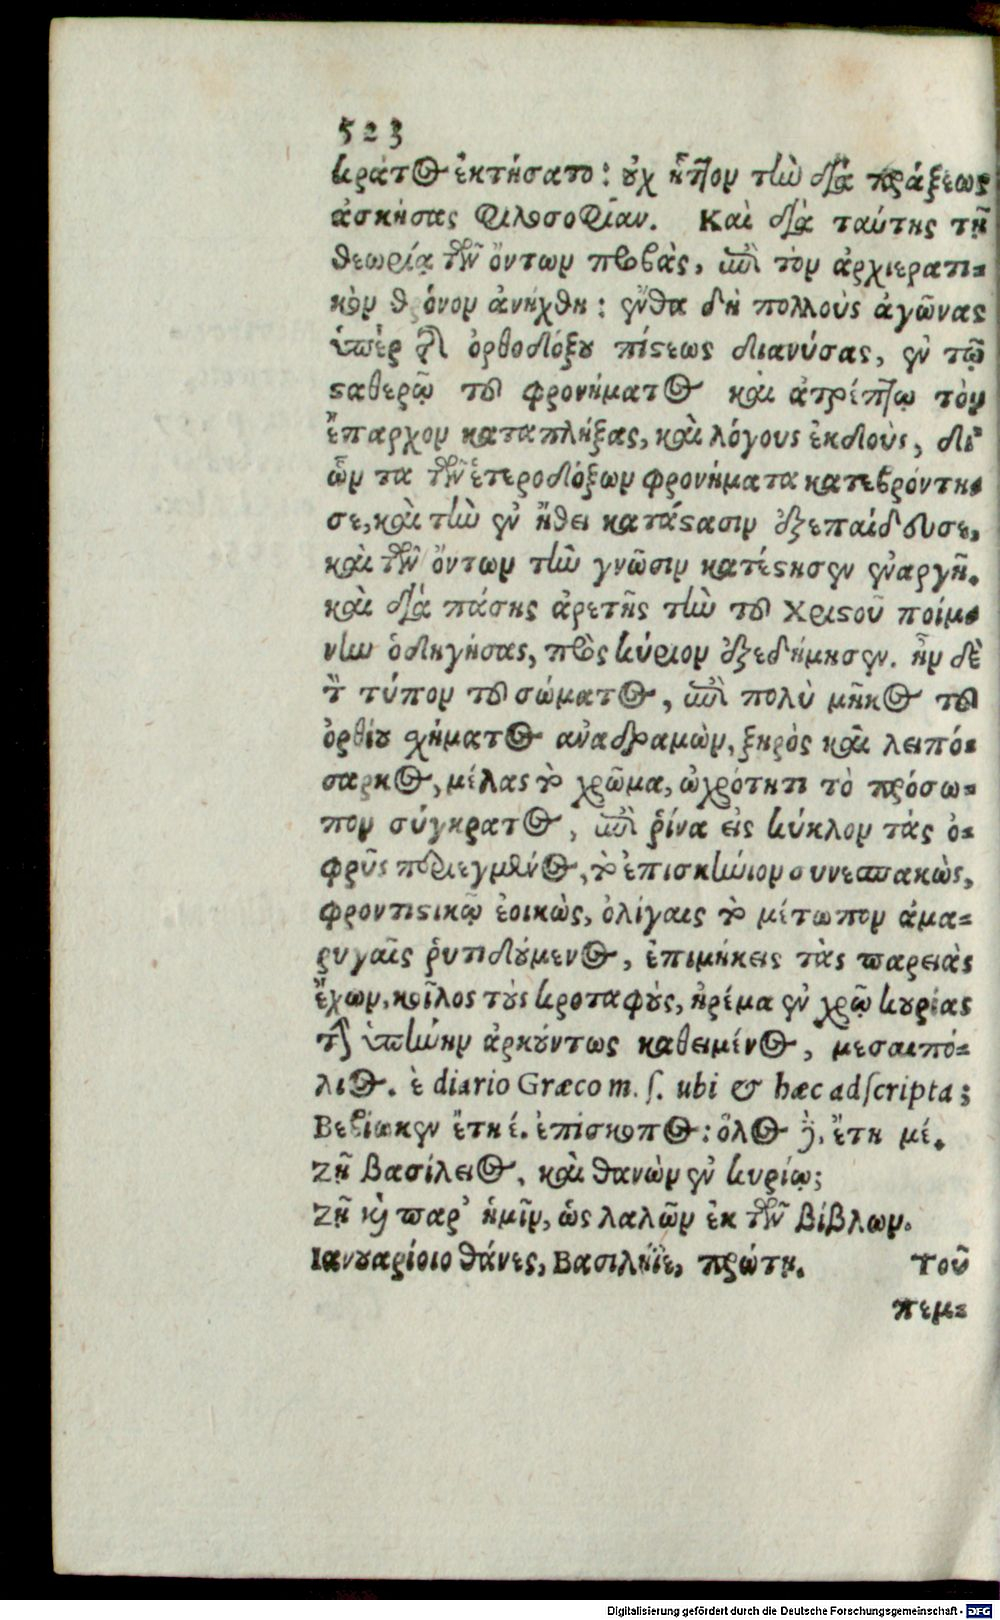 523
κράτος ἐκτήσατο: οὐχ ἧττον τὴν διὰ πράξεως
ἀσκήσας φιλοσοφίαν. Καὶ διὰ ταύτης τῇ
θεωρίᾳ τῶν ὄντων προβὰς, ἐπὶ τὸν ἀρχιερατι=
κὸν θρόνον ἀνήχθη: ἔνθα δὴ πολλοὺς ἀγῶνας
ὑπὲρ τῆς ὀρθοδόξου πίστεως διανύσας, ἐν τῷ
σταθερῷ τοῦ φρονήματος καὶ ἀτρέπτῳ τὸν
ἔπαρχον καταπλήξας, καὶ λόγους ἐκδοὺς, δι'
ὧν τα τῶν ἑτεροδόξων φρονήματα κατεβρόντη=
σε, καὶ τὴν ἐν ἤθει κατάστασιν ἐξεπαίδευσε,
καὶ τῶν ὄντων τὴν γνῶσιν κατέστησεν ἐναργῆ.
καὶ διὰ πάσης ἀρετῆς τὴν τοῦ Χριστοῦ ποίμ=
νην ὁδηγήσας, πρὸς κύριον ἐξεδήμησεν. ἦν δὲ
τ τύπον τοῦ σώματος, ἐπὶ πολὺ μῆκος τοῦ
ὀρθίου σχήματος αναδραμὼν, ξηρὸς καὶ λειπό=
σαρκος, μέλας τὸ χρῶμα, ὠχρότητι τὸ πρόσω=
πον σύγκρατος, ἐπὶ ῥίνα εἰς κύκλον τὰς ὀ=
φρῦς περιεγμένος, τὸ ἐπισκύνιον συνεσπακὼς,
φροντιστικῷ ἐοικὼς, ὀλίγαις τὸ μέτωπον ἁμα=
ρυγαῖς ῥυτιδούμενος, ἐπιμήκεις τὰς παρειὰς
ἔχων, κοῖλος τοὺς κροταφοὺς, ἠρέμα ἐν χρῷ κουρίας
τὴν ὑπήνην ἀρκούντως καθειμένος, μεσαιπό=
λιος. è diario Græco m. ſ. ubi & hæc adſcripta;
Βεβίωκεν ἔτη έ. ἐπίσκοπος: ὅλος ἔτη μέ.
Ζῇ Βασίλειος, καὶ θανὼν ἐν κυρίῳ;
Ζῇ καὶ παρ' ἡμῖν, ὡς λαλῶν ἐκ τῶν βίβλων.
Ιανουαρίοιο θάνες, Βασιλήϊε, πρώτῃ. Τοῦ
πεμ=
Digitalisierung gefördert durch die Deutsche Forschungsgemeinschaft - DFG